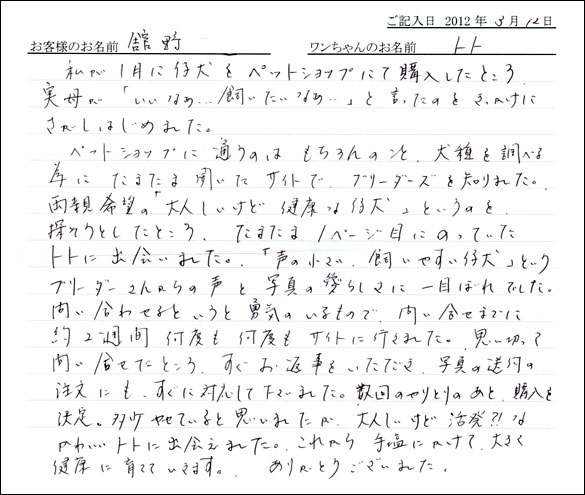 ご記入日 2012年 3月 12日
お客様のお名前 舘野 ワンちゃんのお名前 トト
私が1月に仔犬をペットショップにて購入したところ
実母が「いいなぁ…飼いたいなぁ…」と言ったのをきっかけに
さがしはじめました。
ペットショップに通うのはもちろんのこと、犬種を調べる
為にたまたま開いたサイトで、ブリーダーズを知りました。
両親希望の「大人しいけど健康な仔犬」というのを、
探そうとしたところ、たまたま1ページ目にのっていた
トトに出会いました。「声の小さい、飼いやすい仔犬」という
ブリーダーさんからの声と写真の愛らしさに一目ぼれでした。
問い合わせるというと勇気のいるもので、問い合せまでに
約2週間 何度も何度もサイトに行きました。思い切って
問い合せたところ、すぐお返事をいただき、写真の送付の
注文にも、すぐに対応して下さいました。数回のやりとりのあと、購入を
決定。多少やせていると思いましたが、大人しいけど活発⁈な
かわいいトトに出会えました。これから手塩にかけて、大きく
健康に育てていきます。 ありがとうございました。